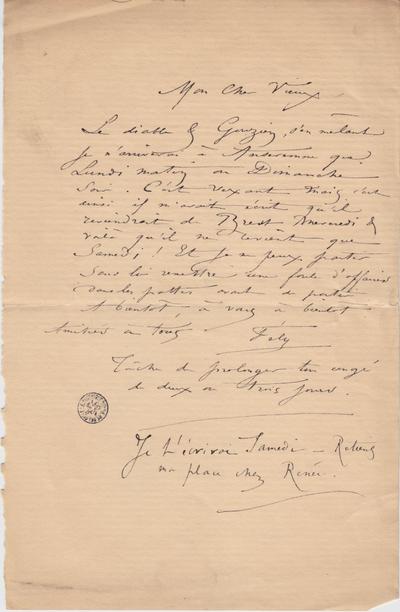 Mon cher Vieux
Le diable & Gouzien, s'en mêlant
je n'arriverai à Anseremme que
Lundi matin ou Dimanche
Soir. C'est vexant mais c'est
ainsi il m'avait écrit qu'il
reviendrait de Brest mercredi &
voilà qu'il ne revient que
Samedi ! Et je ne peux partir
sans lui remettre une foule d'affaires
dans les pattes avant de partir
A bientôt, à vous à bientôt.
Amitiés à tous
Fély
Tâche de prolonger ton congé
de deux ou trois jours.
Je t'écrirai Samedi – Retiens
ma place chez Renée.